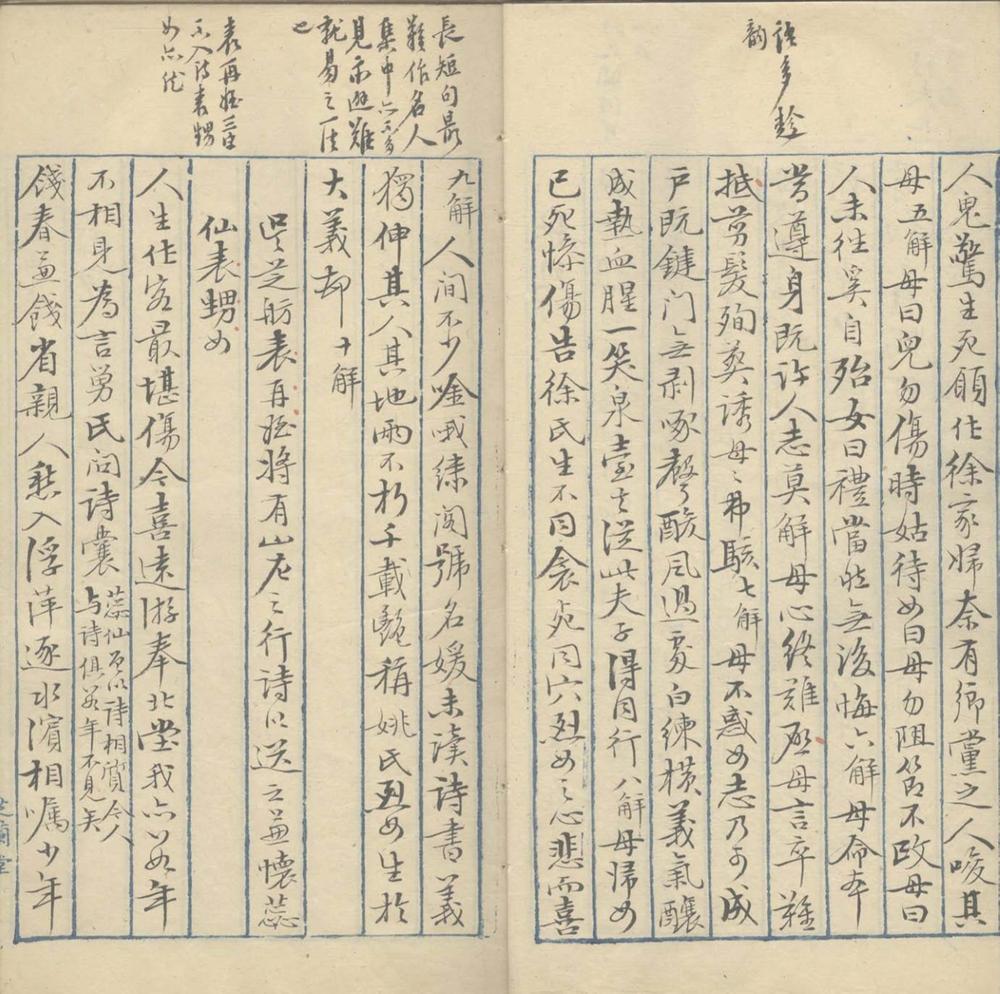 語多趁
韻
人鬼驚生死願作徐家婦奈有鄉黨之人唆其
母五解母曰兒勿傷時姑待女曰母勿阻節不改母曰
人未往奚自殆女曰禮當然無後悔六解母命本
當遵身既許人志莫解母心終難母言卒難
抵剪髮殉葬誘母母弗駭七解母不惑女志乃可成
戶既鍵門無剥啄聲酸風過處白練橫義氣釀
成熱血腥一笑泉臺去從此夫子得同行八解母歸女
已死慘傷告徐氏生不同衾死同穴烈女之心悲而喜
長短句最
難作名人
集中亦不多
見示避難
就易之一法
也
九解人間不少哦繡閣號名媛未讀詩書義
獨伸其人其地兩不朽千載豔稱姚氏烈女生於
大義却十解
表再姪三字
不入詩表甥
女亦然
吳芝舫表再姪將有山左之行詩以送之並懷蕊
仙表甥女
人生作客最堪傷今喜遠游奉北堂我亦年
不相見為言舅氏問詩囊蕊仙以詩相質今人
与詩俱年不見矣
餞春並餞省親人愁入浮萍逐水濱相囑少年
芝蘭堂